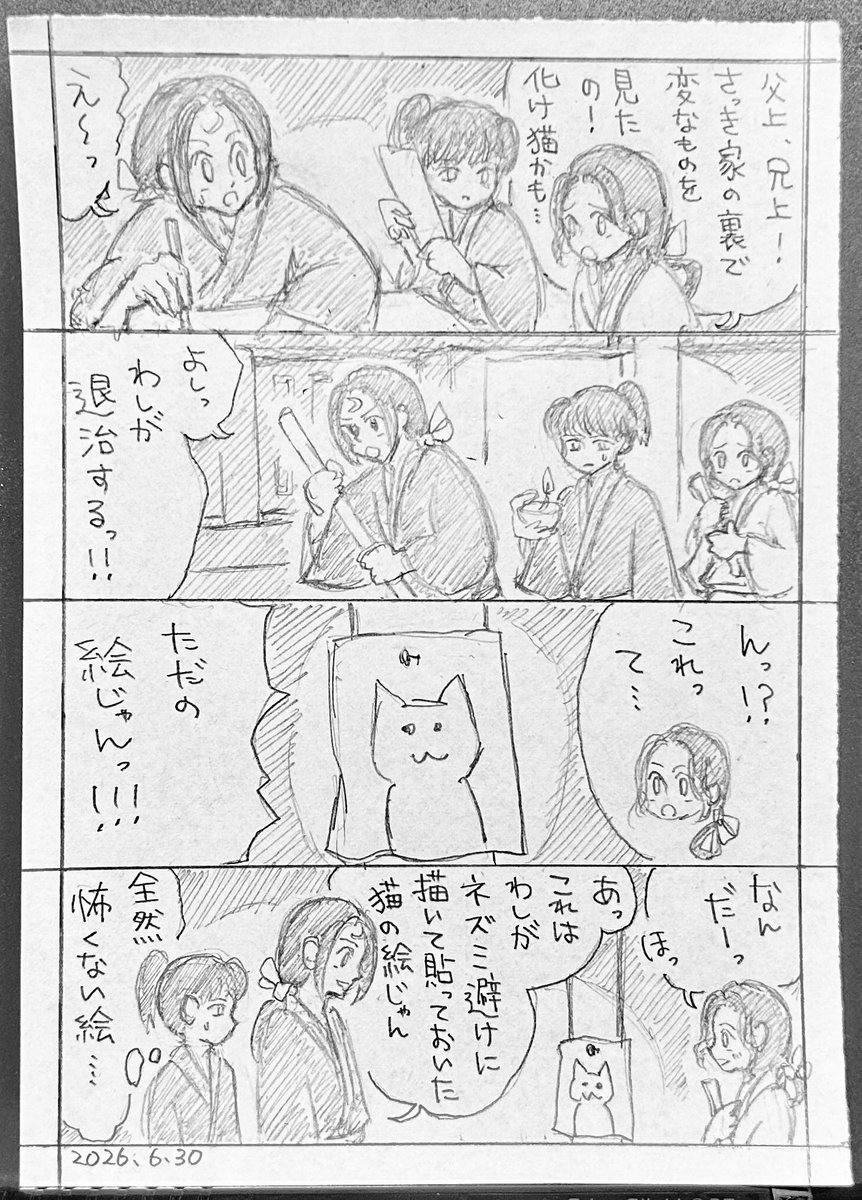 父上、兄上！
さっき家の裏で
変なものを
見た
の！
化け猫かも…
え〜っ
よしっ
わしが
退治するっ!!
んっ!?
これっ
て…
ただの
絵じゃんっ!!!
なん
だーっ
ほっ
あっ
これは
わしが
ネズミ避けに
描いて貼っておいた
猫の絵じゃん
全然
怖くない絵…
2026.6.30